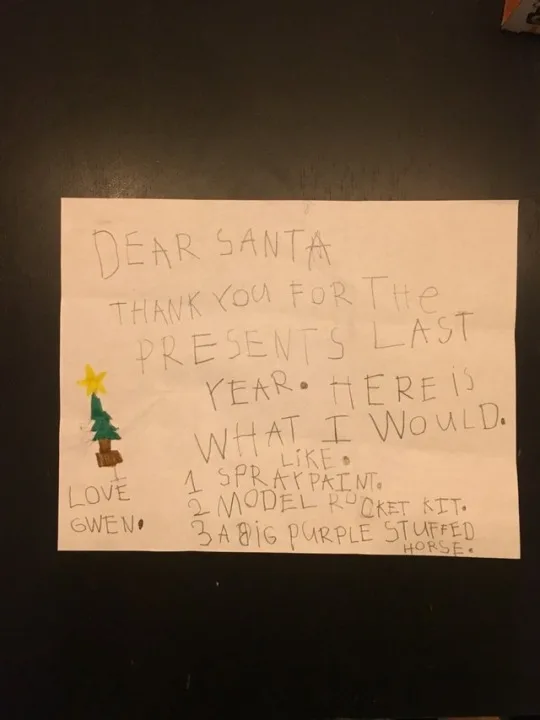 DEAR SANTA
THANK YOU FOR THe
PRESENTS LAST
YEAR. HERE iS
WHAT I WOULD.
LiKE.
1 SPRAYPAINT.
2 MODEL ROCKET KIT.
3 A BiG PURPLE STUFFED
HORSE.
LOVE
GWEN.